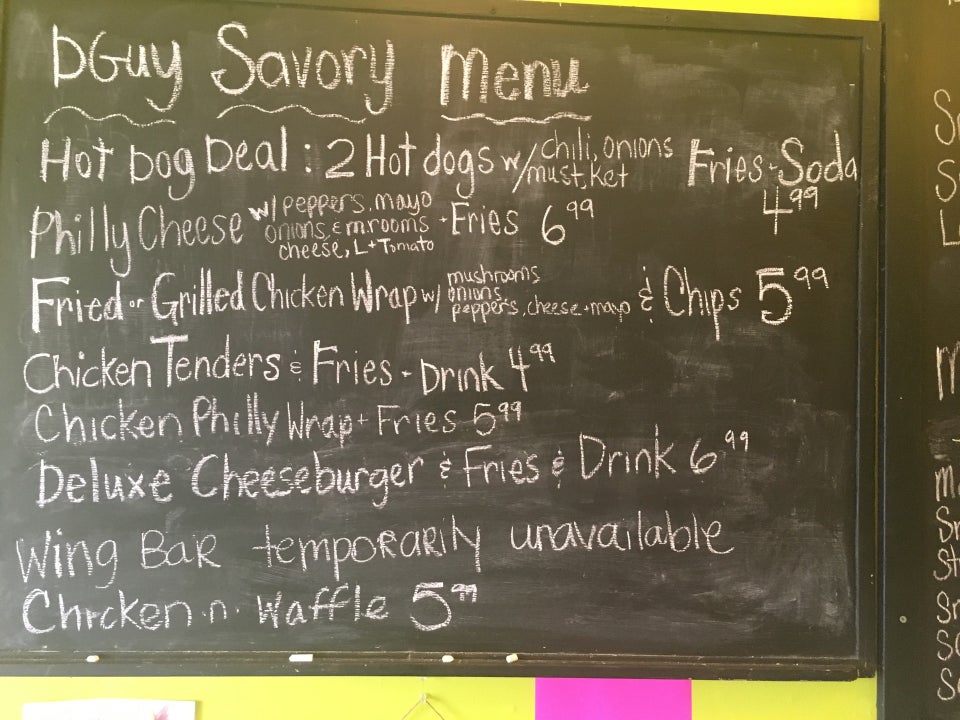 DGuy Savory Menu
Hot Dog Deal: 2 Hot dogs w/ chili, onions must, ket Fries + Soda 4.99
Philly Cheese w/ peppers, mayo onions, & m.rooms cheese, L + Tomato + Fries 6.99
Fried or Grilled Chicken Wrap w/ mushrooms onions, peppers, cheese + mayo & Chips 5.99
Chicken Tenders & Fries - Drink 4.99
Chicken Philly Wrap + Fries 5.99
Deluxe Cheeseburger & Fries & Drink 6.99
Wing BaR temporarily unavailable
Chicken .n. Waffle 5.99